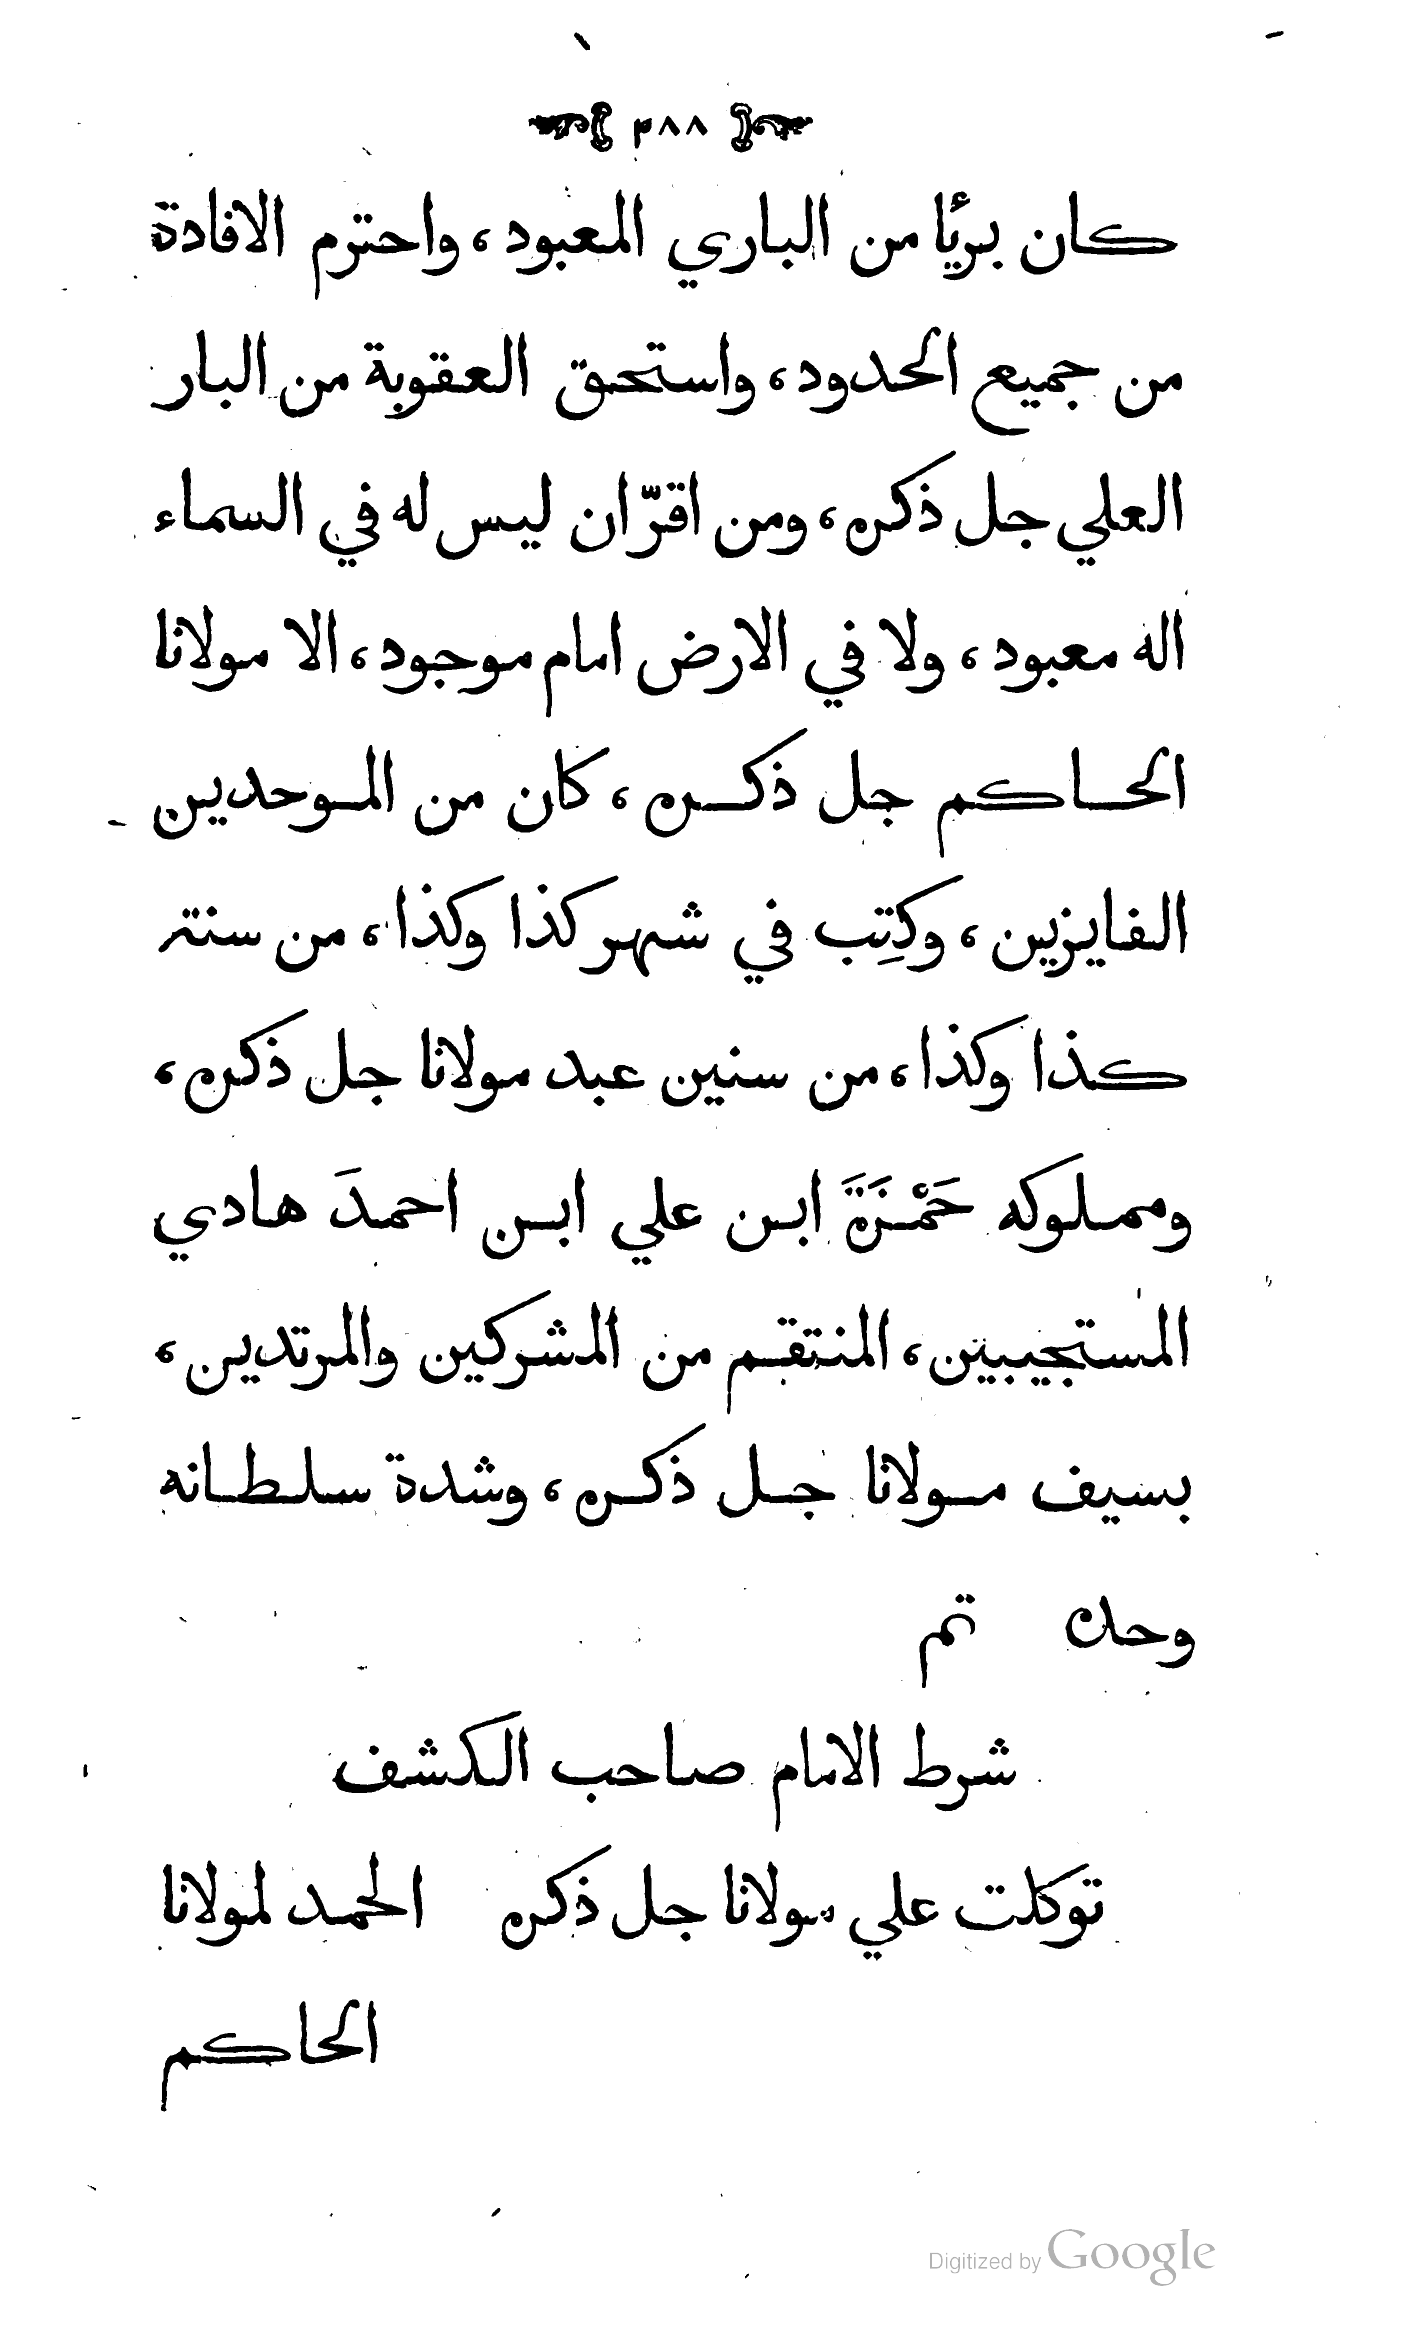 ٣٨٨
كان بريًا من الباري المعبود، واحترم الافادة
من جميع الحدود، واستحق العقوبة من البار
العلي جل ذكره، ومن اقرّ ان ليس له في السماء
اله معبود، ولا في الارض امام موجود، الا مولانا
الحاكم جل ذكره، كان من الموحدين
الفايزين، وكتِب في شهر كذا وكذا، من سنة
كذا وكذا، من سنين عبد مولانا جل ذكره،
ومملوكه حَمْزَةَ ابن علي ابن احمدَ هادي
المستجيبين، المنتقم من المشركين والمرتدين،
بسيف مولانا جل ذكره، وشدة سلطانه
وحده تم
شرط الامام صاحب الكشف
توكلت علي مولانا جل ذكره الحمد لمولانا
الحاكم
Digitized by Google